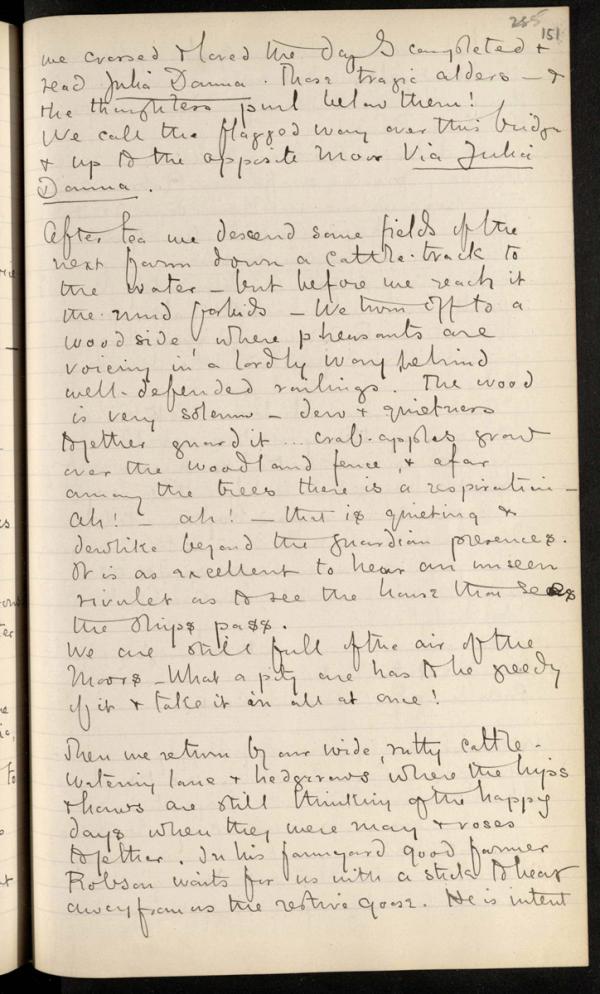 285
151
we crossed & loved the day I completed &
read Julia Domna. Those tragic alders – &
the thoughtless purl below them!
We call the flagged way over this bridge
& up to the opposite Moor Via Julia
Domna.
After tea we descend some fields of the
next farm down a cattle-track to
the water – but before we reach it
the mud forbids – We turn off to a
wood side where pheasants are
voicing in a lordly way behind
well-defended railings. The wood
is very solemn – dew & quietness
together guard it ... crab-apples grow
over the woodland fence, & afar
among the trees there is a respiration –
ah! – ah! – that is quieting &
dewlike beyond the guardian presences.
It is as excellent to hear an unseen
rivulet as to see the house that sees
the ships pass.
We are still full of the air of the
Moors – What a pity one has to be greedy
of it & take it in all at once!
Then we return by our wide, rutty cattle-
watering lane & hedgerows where the hips
& haws are still thinking of the happy
days when they were may & roses
together. In his farmyard good farmer
Robson waits for us with a stick to beat
away from us the restive goose. He is intent